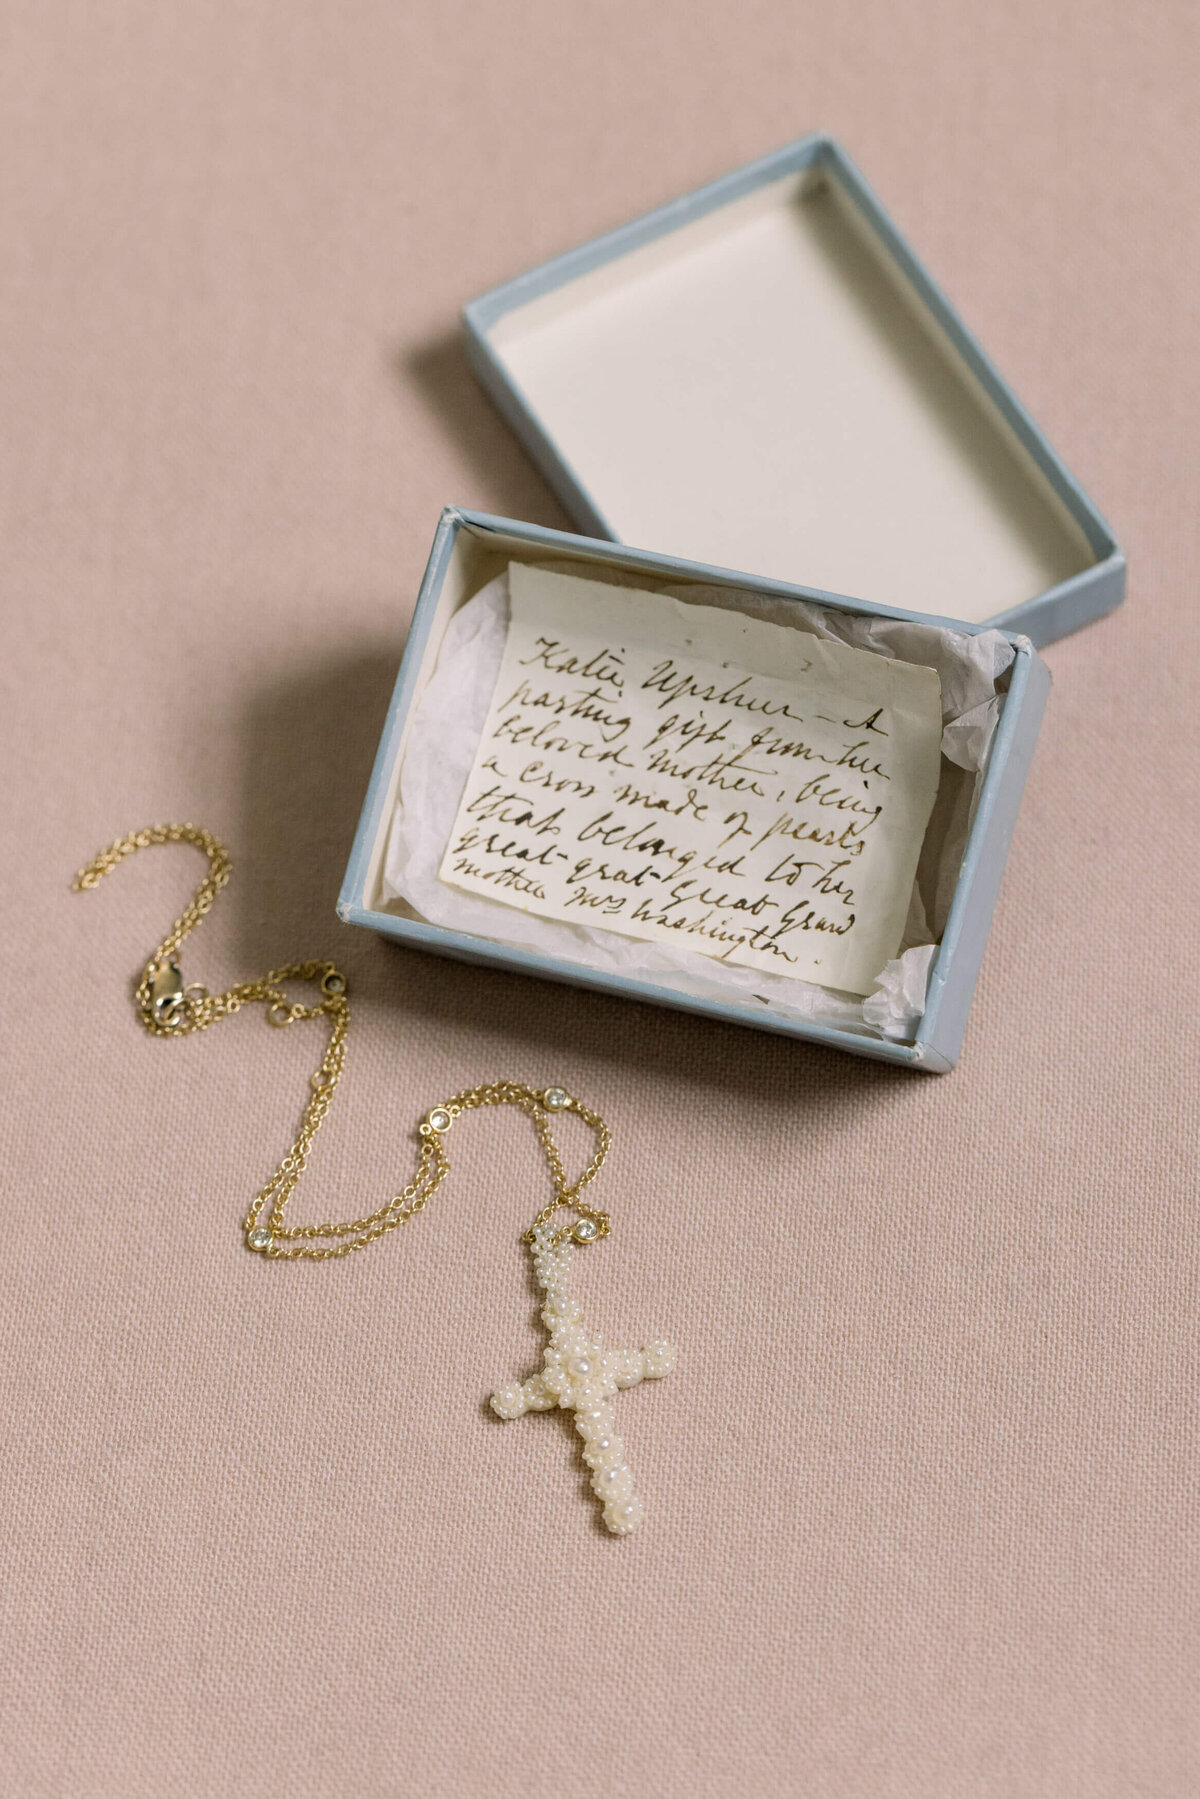 Katie Upshur - A
parting gift from her
beloved Mother, being
a cross made of pearls
that belonged to her
great-grat-Great Grand
mother Mrs Washington.